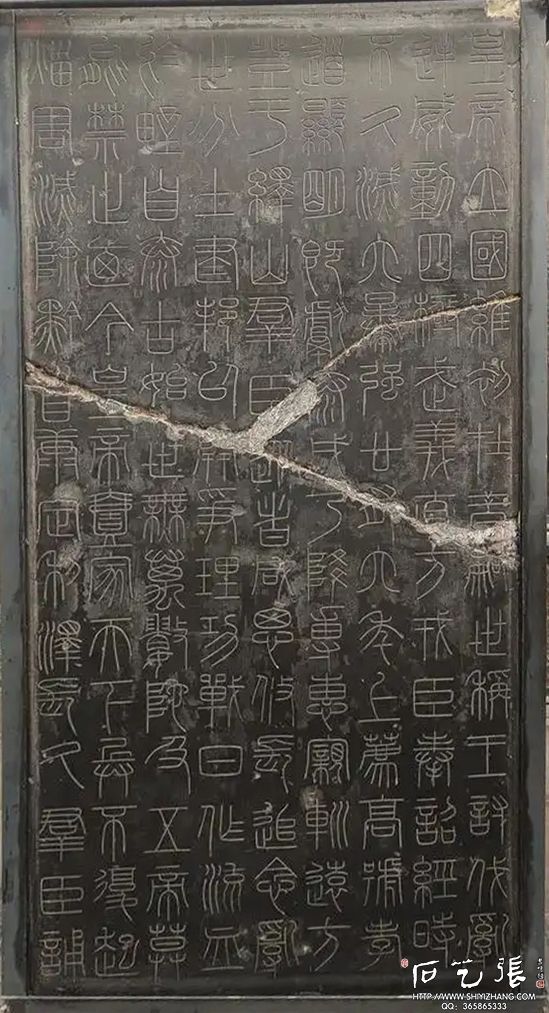 皇帝立國維初在昔嗣世稱王討伐亂
逆威動四極武義直方戎臣奉詔經時
不久滅六暴強廿有六年上薦高號孝
道顯明既獻泰成乃降尃惠寴巡遠方
登于繹山羣臣從者咸思攸長追念亂
世分土建邦以開爭理功戰日作流血
於野自泰古始世無萬數陀及五帝莫
能禁止廼今皇帝壹家天下兵不復起
災害滅除黔首康定利澤長久羣臣誦
石艺張
HTTP://WWW.SHIYIZHANG.COM
QQ: 365865333